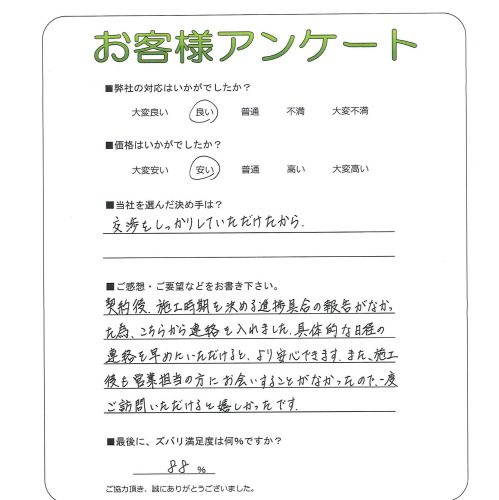 お客様アンケート
■弊社の対応はいかがでしたか？
大変良い 良い 普通 不満 大変不満
■価格はいかがでしたか？
大変安い 安い 普通 高い 大変高い
■当社を選んだ決め手は？
交渉をしっかりしていただけたから.
■ご感想・ご要望などをお書き下さい。
契約後、施工時期を決める進捗具合の報告がなかっ
た為、こちらから連絡を入れました.具体的な日程の
連絡を早めにいただけると、より安心できます.また、施工
後も営業担当の方にお会いすることがなかったので、一度
ご訪問いただけると嬉しかったです.
■最後に、ズバリ満足度は何%ですか？
88 %
ご協力頂き、誠にありがとうございました。